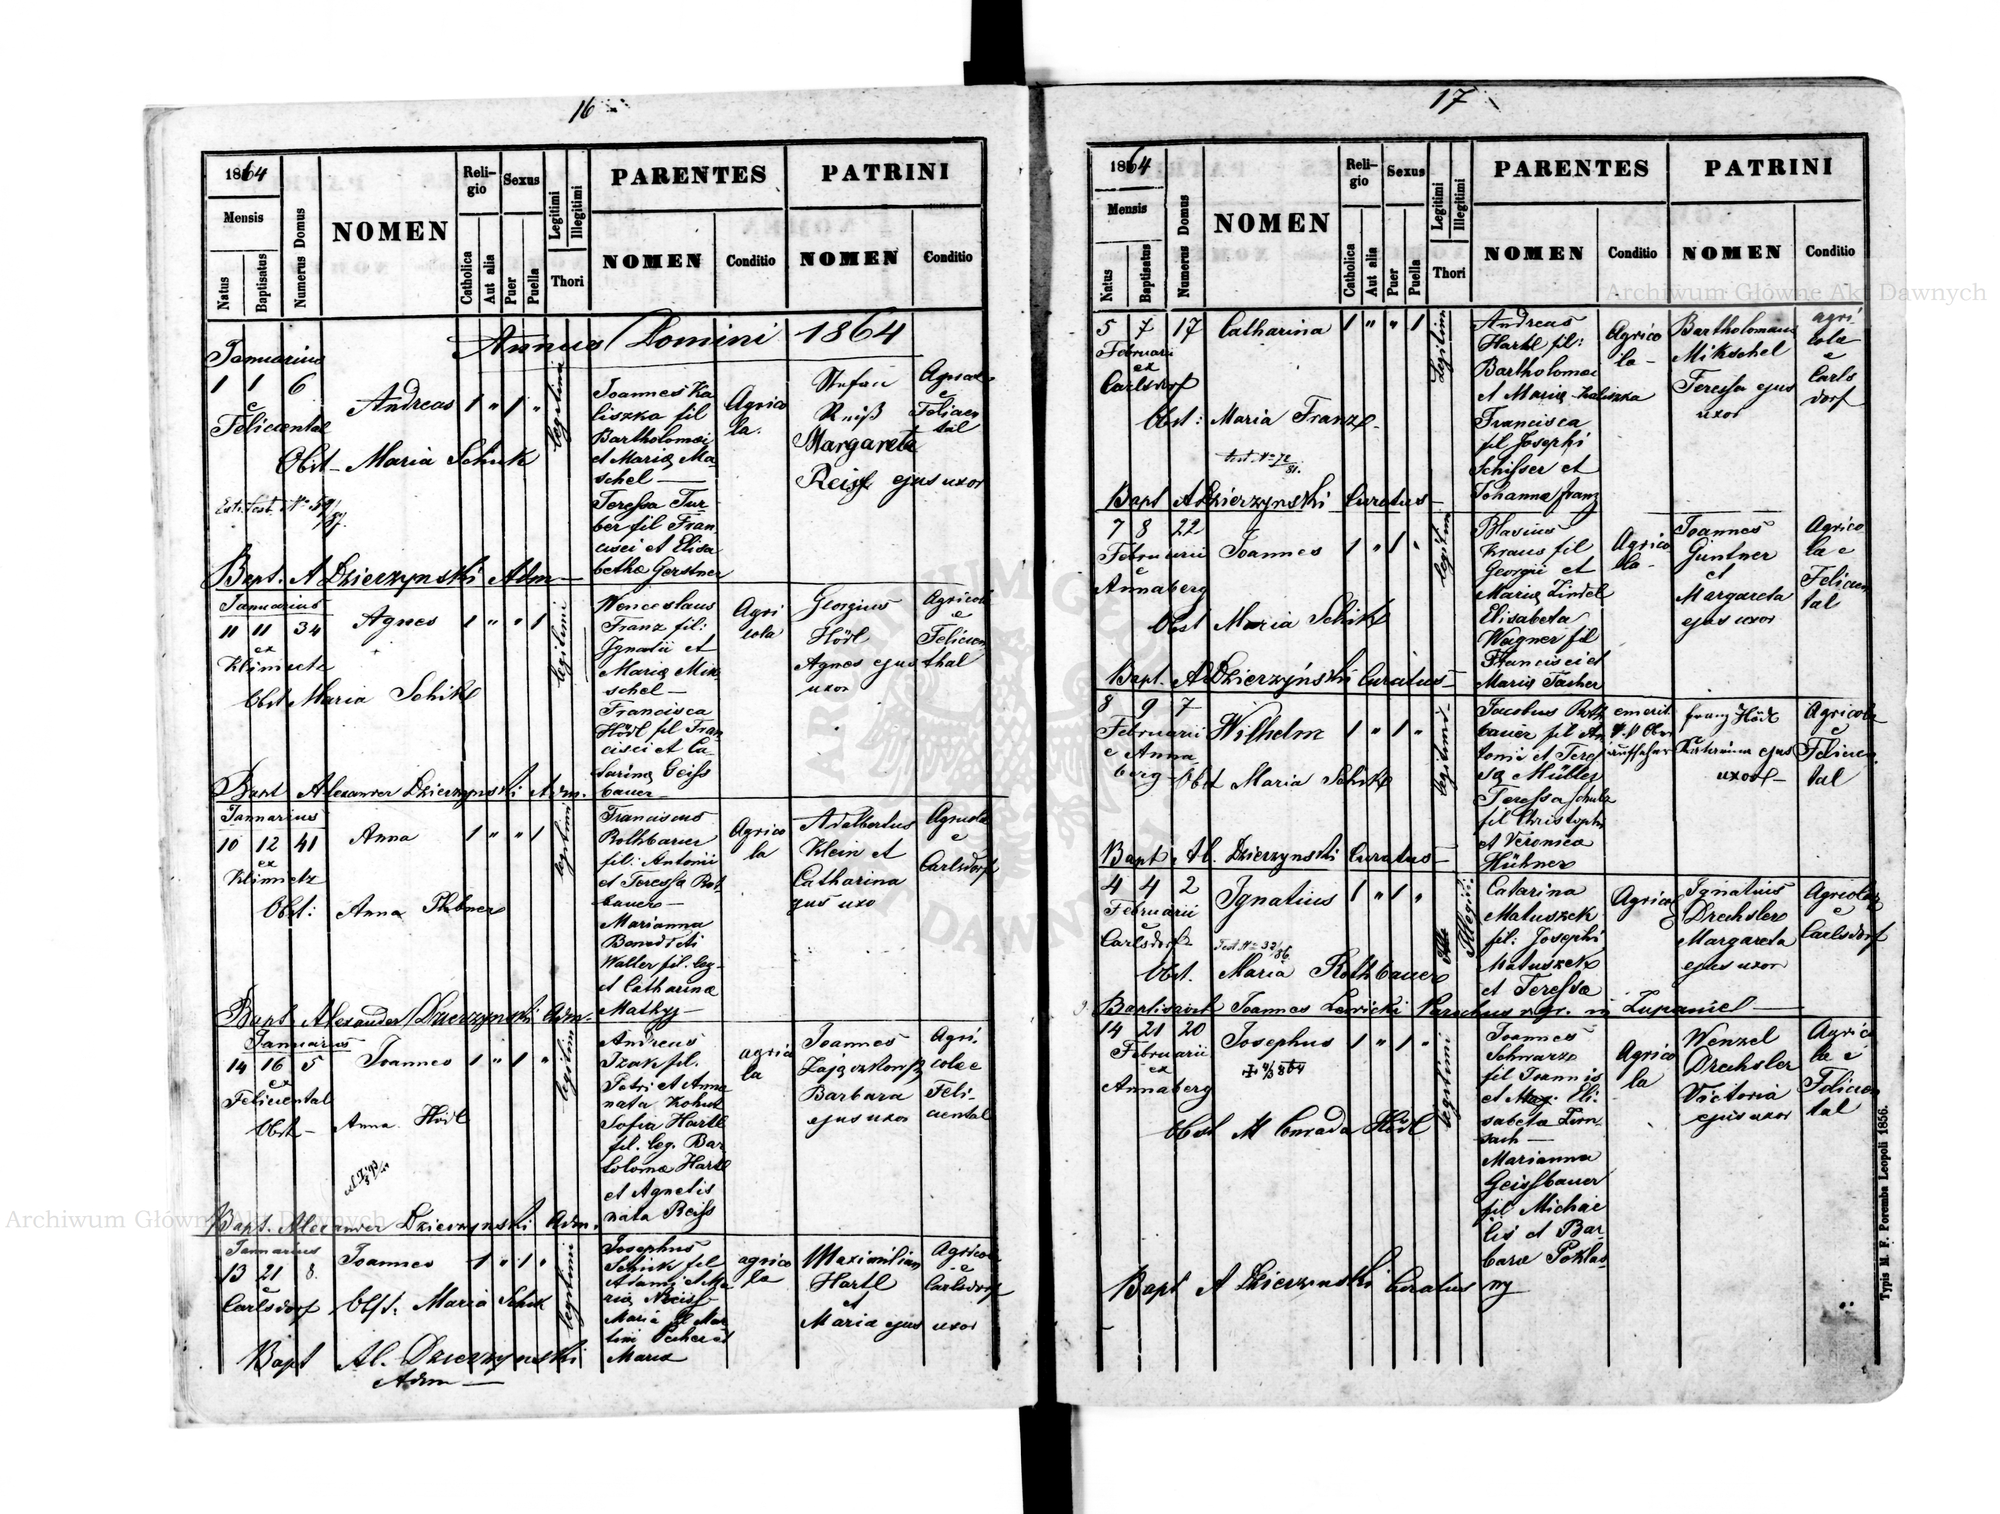 16
1864
Mensis
Natus
Baptisatus
Numerus Domus
NOMEN
Reli-
gio
Catholica
Aut alia
Sexus
Puer
Puella
Legitimi
Illegitimi
Thori
PARENTES
NOMEN
Conditio
PATRINI
NOMEN
Conditio
Annus Domini 1864
Januarius
1 1 6
e
Feliciental
Andreas 1 " 1 "
Obst- Maria Schik
legitimi
Joannes Ka
liszka fil
Bartholomæi
et Mariæ Ma-
schel
Teressa Tur-
ber fil Fran-
cisci et Elisa
bethæ Gerstner
Agrico
la.
Stefan
Reiß
Margareta
Reiss ejus uxor
Agricolæ
e
Felicien
tal
Bapt. A Dzierzynski Adm
Januarius
11 11 34
ex
Klimietz
Agnes 1 " " 1
Obst Maria Schikl
legitimi
Wenceslaus
Franz fil:
Ignatii et
Mariæ Mik-
schel
Francisca
Hödl fil Fran-
cisci et Ca-
tarinæ Geiss
bauer
Agri
cola
Georgius
Hödl
Agnes ejus
uxor
Agricolæ
e
Felicien
thal
Bapt Alexander Dzierzynski Adm.
Januarius
10 12 41
ex
Klimietz
Anna 1 " " 1
Obst: Anna
legitimi
Franciscus
Rothbauer
fil: Antonii
et Teressa Rot
bauer
Marianna
Benedicti
Walter fil. leg-
et Catharinæ
Mathyj
Agrico
la
Adalbertus
Klein et
Catharina
ejus uxo
Agricolæ
e
Carlsdorf
Bapt Alexander Dzierzynski Adm-
Januarius
14 16 5
ex
Feliciental
Joannes 1 " 1 "
Obst- Anna Hödl
legitimi
Andreas
Izak fil.
Petri et Anna
nata Kohut
Sofia Hartl
fil. leg. Bar
tolomæ Hartl
et Agnetis
nata Reiss
agrico
la
Joannes
Barbara
ejus uxor
Agri
colæ e
Feli-
ciental
Bapt. Alexander Dzierzynski Adm.
Januarius
13 21 8.
e
Carlsdorf
Joannes 1 " 1 "
Obst: Maria Schik
legitimi
Josephus
Schik fil
Adami et Ma
riæ Neiss
Maria fil Mar-
tini Pscherer et
Maria
agrico
la
Maximilian
Hartl
et
Maria ejus uxor
Agricolæ
e
Carlsdorf
Bapt Al. Dzierzynski
Adm
17
1864
Mensis
Natus
Baptisatus
Numerus Domus
NOMEN
Reli-
gio
Catholica
Aut alia
Sexus
Puer
Puella
Legitimi
Illegitimi
Thori
PARENTES
NOMEN
Conditio
PATRINI
NOMEN
Conditio
5 7 17
Februarii
ex
Carlsdorf
Catharina 1 " " 1
Obst: Maria Franz
Test. No 72/81.
Legitimi
Andreas
Hartl fil:
Bartholomæi
et Mariæ Kaliszka
Francisca
fil Josephi
Schisser et
Johanna franz
Agrico
la
Bartholomäus
Mikschel
Teressa ejus
uxor
agri-
colæ
e
Carls
dorf
Bapt A Dzierzynski Curatus
7 8 22
Februarii
e
Annaberg
Joannes 1 " 1 "
Obst Maria Schikl
legitimi
Blasius
Kraus fil
Georgii et
Mariæ Zindel
Elisabeta
Wagner fil
Francisci et
Mariæ Tascher
Agrico
la
Joannes
Güntner
et
Margareta
ejus uxor
Agrico
la e
Felicien
tal
Bapt. A Dzierzyński Curatus
8 9 7
Februarii
e Anna
berg
Wilhelm 1 " 1 "
Obst Maria Schikl
legitimi
Jacobus Roth
bauer fil An
tonii et Teres
sæ Müller
Teressa Schulz
fil Christophi
et Veronica
Hühner
emerit.
aufseher
franz Hödl
Katharina ejus
uxor
Agricolæ
e
Felicien
tal
Bapt. Al. Dzierzynski Curatus
4 4 2
Februarii
e
Carlsdorf
Ignatius 1 " 1 "
Test No 32/86
Obst. Maria Rothbauer
Illegit.
Catarina
Matuszek
fil: Josephi
Matuszek
et Teressæ
Agricol
Ignatius
Drechsler
Margareta
ejus uxor
Agricolæ
e
Carlsdorf
Baptisavit Joannes Lewicki Parochus r. gr. in Zupaniel
14 21 20
Februarii
ex
Annaberg
Josephus 1 " 1 "
Obst M Conrada Hödl
legitimi
Joannes
Schwarz
fil Joannis
et Eli
sabeta Zirn
sach
Marianna
Geissbauer
fil Michae
lis et Bar-
bara Poklas-
ny
Agrico
la
Wenzel
Drechsler
Victoria
ejus uxor
Agrico
la e
Felicien
tal
Bapt A Dzierzynski Curatus
Typis M. F. Poremba Leopoli 1856.
Archiwum Główne Akt Dawnych
Archiwum Główne Akt Dawnych